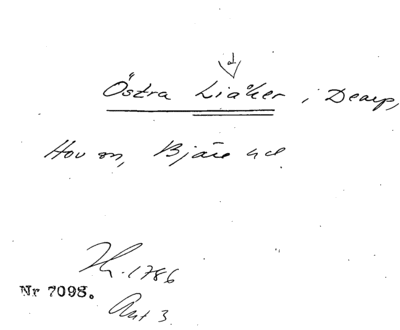 d
Östra Liåker, i Dearp,
Hov sn, Bjäre hd
Th. 1786
Nr 7098.
Ant 3.